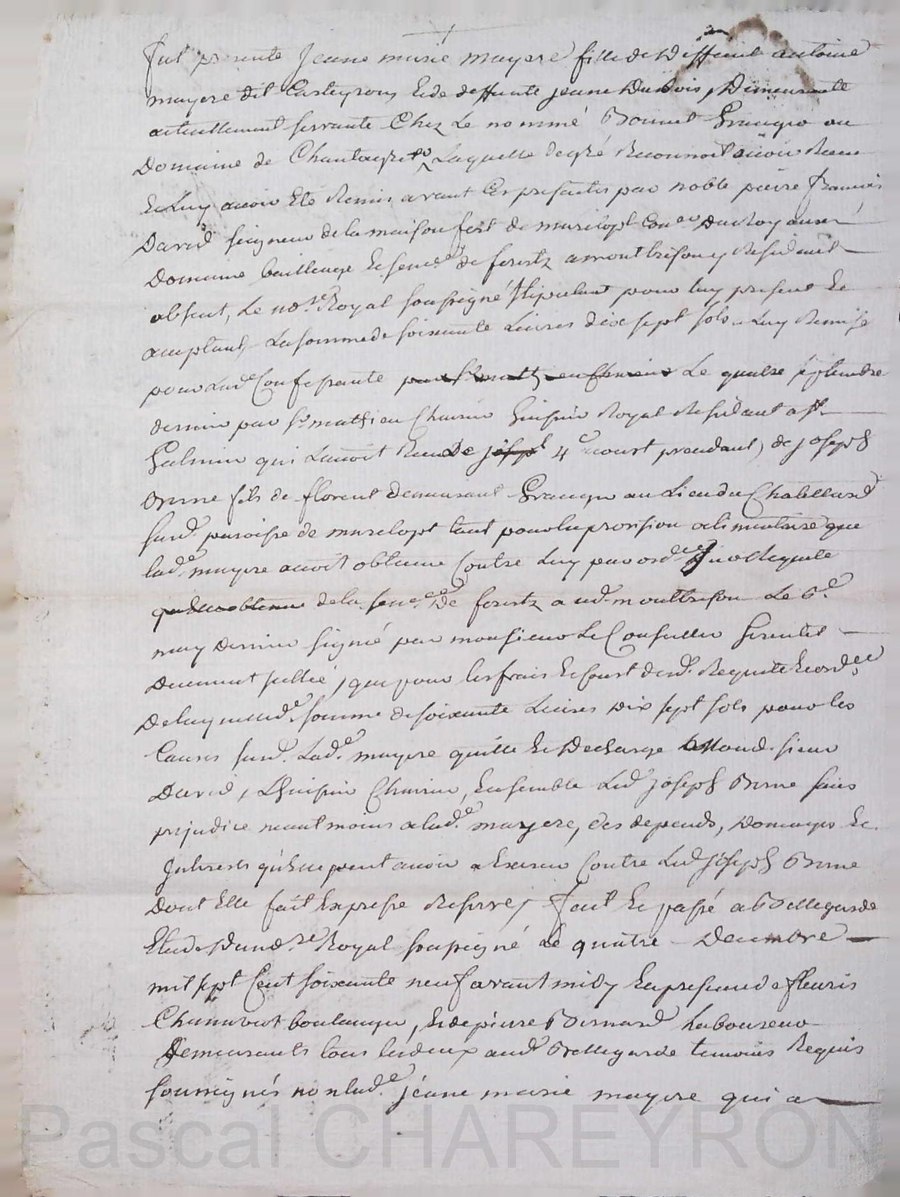 Fut presente Jeane marie mayere fille de deffunt antoine
mayere dit Casteyron, Et de deffunte jeane Dubois, Demeurante
actuellement servante Chez Le nommé Bonnet Granger au
Domaine de laquelle de gré Reconnoit avoir Receu
Et Luy avoir Eté Remis avant Ces presentes par noble pierre francois
David seigneur de la maison fort de Con.er Du Roy au
Domaine bailliage Et sen.ée de forestz a montbrison y Residant
absent, Le no.re Royal soussigné stipulant pour luy present Et
acceptant, La somme de soixante Livres dix sept sols, Luy Remise
pour Lad.e Confessante Le quatre septembre
dernier par s.r mathieu Chavin huissier Royal Residant a st
Galmier qui Lavoit Receu De 4 court de joseph
Brme fils de florent demeurant Granger au Lieu du Chatellard
susd. paroisse de tant pour la provision alimentaire que
lad.e mayere avoit obtenue Contre Luy par ord.ce
de la sen.ée De forestz aud. montbrison Le 6.e
may dernier signé par monsieur Le Conseiller
Deuement sellée, que pour les frais Et de lad. Requete Et ord.ce
De laquelle somme de soixante Livres Dix sept sols pour les
Causes susd. Lad.e mayere quitte Et Decharge sieur
David, L'huissier Chavin, Ensemble Led. joseph Brme sans
prejudice neantmoins a lad.e mayere, Des depends, Domages Et
Interests qu'elle peut avoir a Exercer Contre Led. joseph Brme
Dont Elle fait Expresse Reserve, fait Et passé a Bellegarde
Etude Du no.re Royal soussigné Le quatre Decembre
mil sept Cent soixante neuf avant midy En presence de fleuris
boulanger, Et de pierre Bernard Laboureur
Demeurants tous Les deux aud. Bellegarde temoins Requis
soussignés non lad.e jeane marie mayere qui a
Pascal CHAREYRON